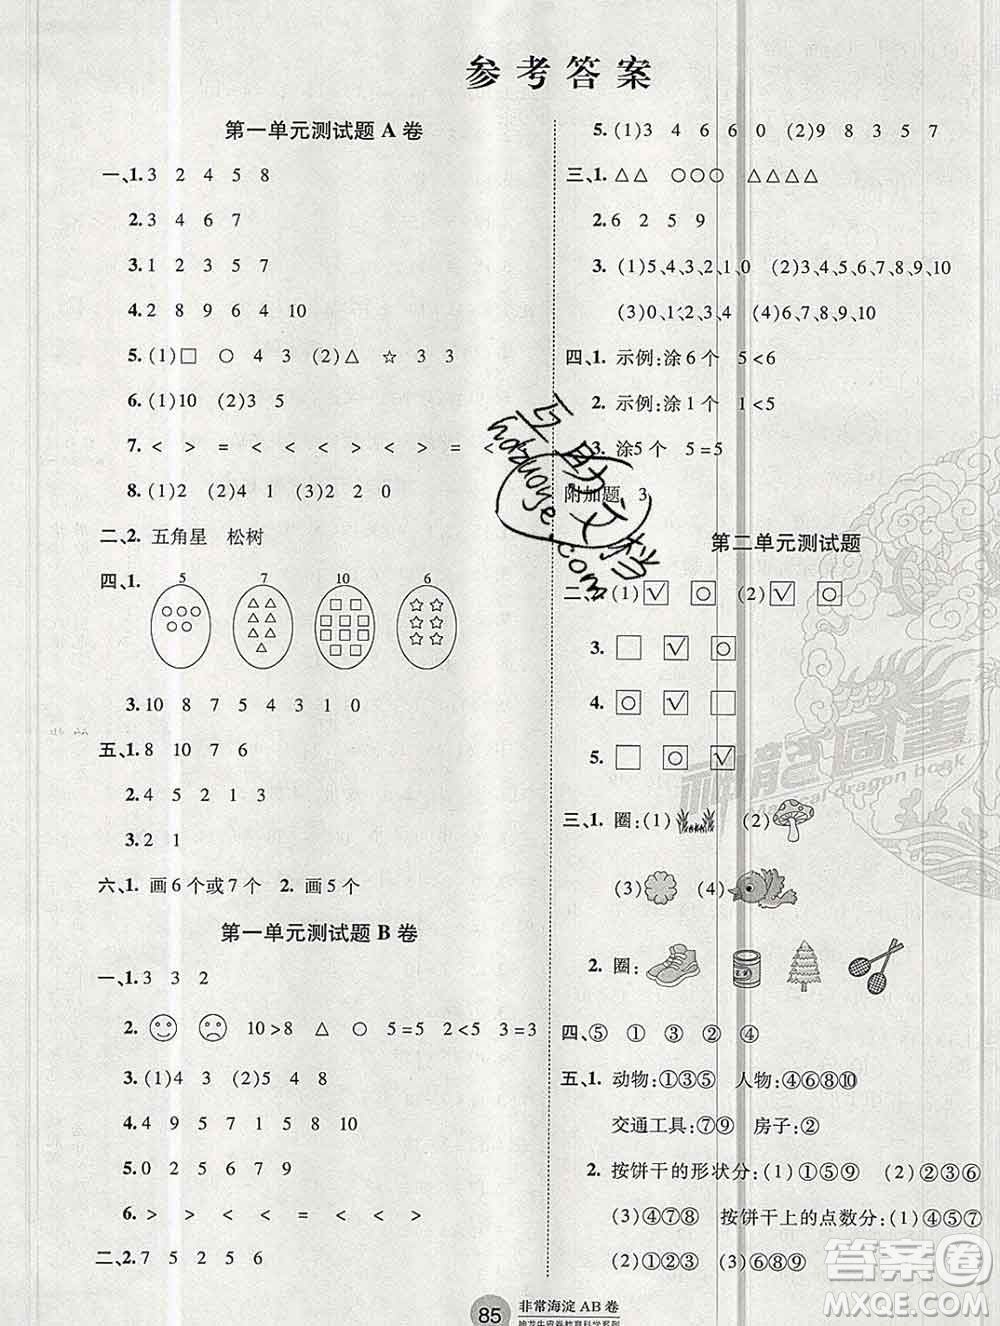 参考答案
第一单元测试题 A 卷
一、1. 3 2 4 5 8
2. 3 4 6 7
3. 1 2 2 5 7
4. 2 8 9 6 4 10
5. (1)□ ○ 4 3 (2)△ ☆ 3 3
6. (1)10 (2)3 5
7. < > = < < > < > = <
8. (1)2 (2)4 1 (3)2 2 0
二、2. 五角星 松树
四、1. 5 7 10 6
3. 10 8 7 5 4 3 1 0
五、1. 8 10 7 6
2. 4 5 2 1
3. 2 1
六、1. 画6个或7个 2. 画5个
第一单元测试题 B 卷
一、1. 3 3 2
2. 10>8 △ ○ 5=5 2<5 3=3
3. (1)4 3 (2)5 4 8
4. 4 9 5 7 1 5 8 10
5. 0 2 5 6 7 9
6. > > < < = < < >
二、2. 7 5 2 5 6
5. (1)3 4 6 6 0 (2)9 8 3 5 7
三、1. △△ ○○○ △△△△
2. 6 2 5 9
3. (1)5、4、3、2、1、0 (2)3、4、5、6、7、8、9、10
(3)0、1、2、3、4 (4)6、7、8、9、10
四、1. 示例:涂6个 5<6
2. 示例:涂1个 1<5
3. 涂5个 5=5
附加题 3
第二单元测试题
二、2. (1)☑ ○ (2)☑ ○
3. □ √ ○
4. ○ √ □
5. □ ○ √
三、1. 圈:(1) (2)
(3) (4)
2. 圈:
四、⑤ ① ③ ② ④
五、1. 动物:①③⑤ 人物:④⑥⑧⑩
交通工具:⑦⑨ 房子:②
2. 按饼干的形状分:(1)①⑤⑨ (2)②③⑥
(3)④⑦⑧ 按饼干上的点数分:(1)④⑤⑦
(2)①②③ (3)⑥⑧⑨
85 非常海淀 AB 卷
神龙牛皮卷教育科学系列
互助文档
hdzuoye.com
神龙图書
Magical dragon book
答案圈
MXQE.COM